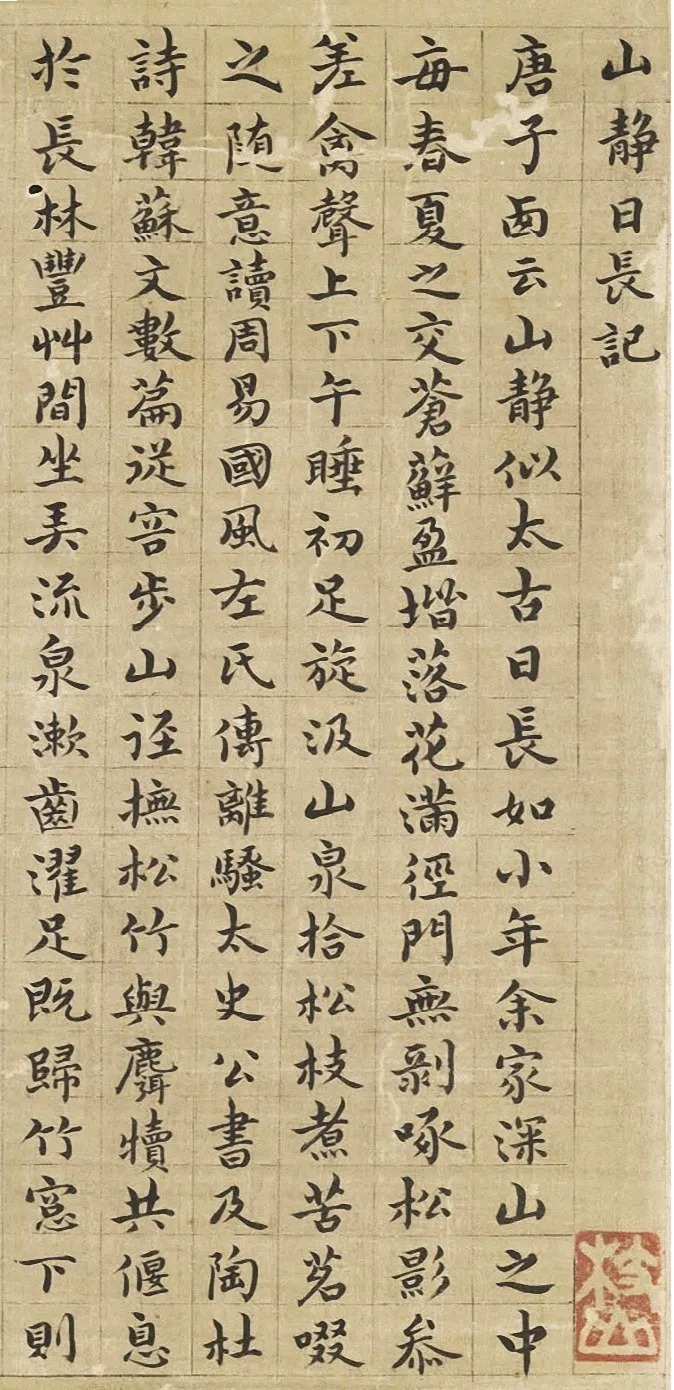 山静日長記
唐子西云山静似太古日長如小年余家深山之中
每春夏之交蒼蘚盈堦落花滿徑門無剥啄松影叅
差禽聲上下午睡初足旋汲山泉拾松枝煮苦茗啜
之随意讀周易國風左氏傳離騷太史公書及陶杜
詩韓蘇文數篇從容步山迳撫松竹與麛犢共偃息
於長林豐艸間坐弄流泉漱齒濯足既歸竹窓下則